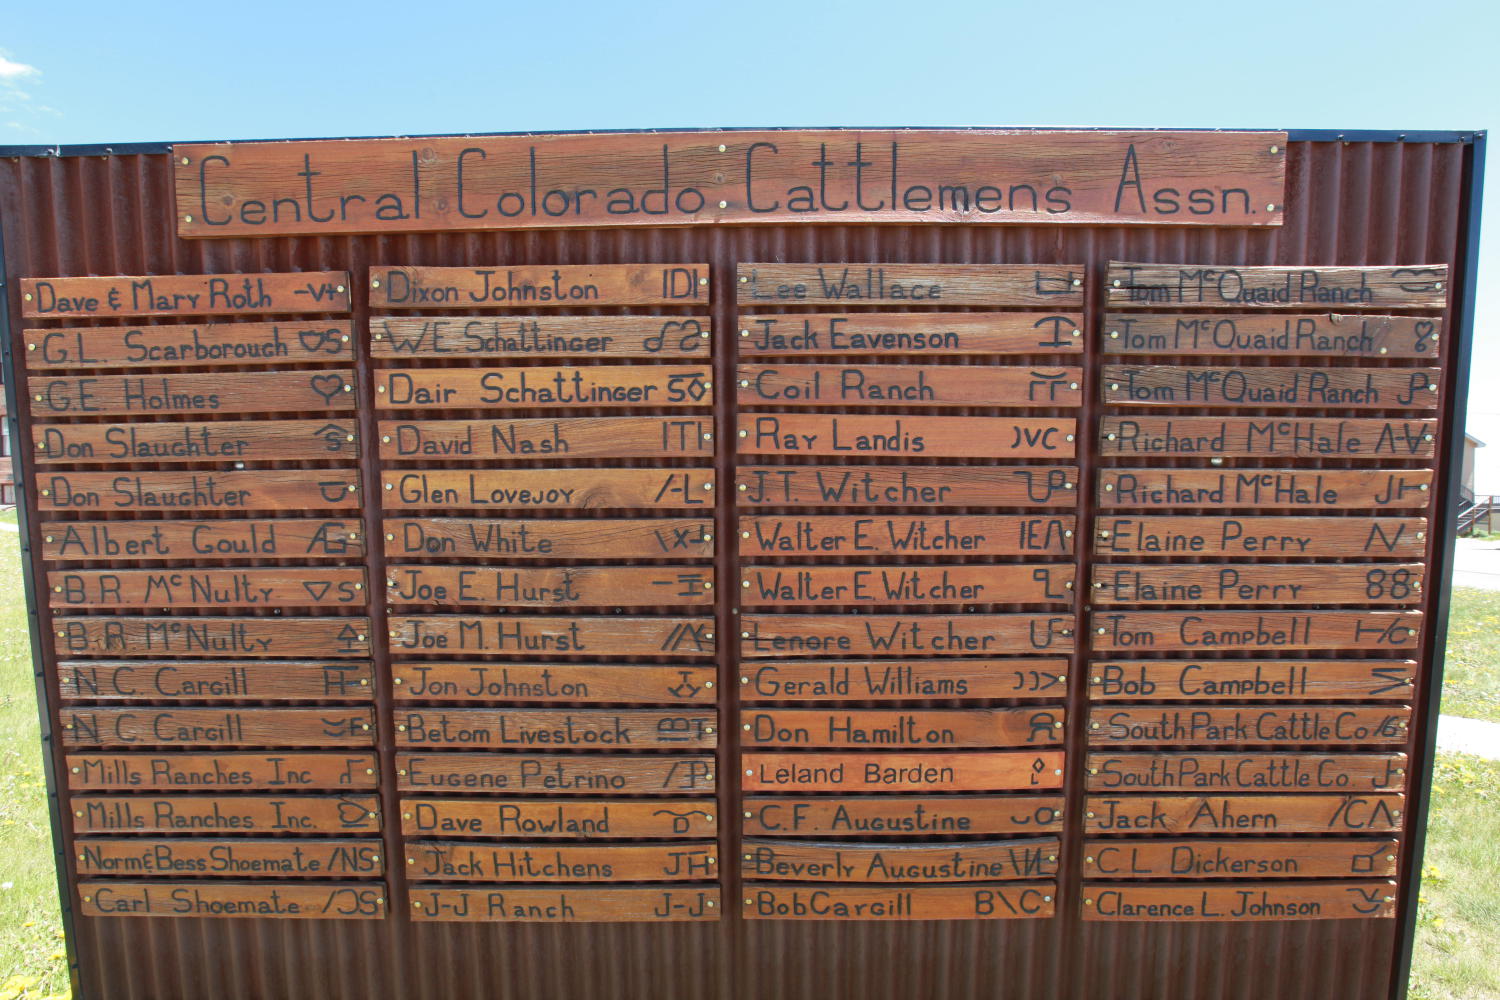 Central Colorado Cattlemens Assn.
Dave & Mary Roth -V+
G.L. Scarborough S
G.E. Holmes
Don Slaughter
Don Slaughter
Albert Gould
B.R. McNulty S
B.R. McNulty
N.C. Cargill
N.C. Cargill
Mills Ranches Inc
Mills Ranches Inc.
Norm & Bess Shoemate /NS
Carl Shoemate
Dixon Johnston IDI
W.E. Schattinger
Dair Schattinger
David Nash ITI
Glen Lovejoy /-L
Don White
Joe E. Hurst
Joe M. Hurst
Jon Johnston
Betom Livestock
Eugene Petrino
Dave Rowland
Jack Hitchens JH
J-J Ranch J-J
Lee Wallace
Jack Eavenson
Coil Ranch
Ray Landis )VC
J.T. Witcher
Walter E. Witcher
Walter E. Witcher
Lenore Witcher
Gerald Williams
Don Hamilton
Leland Barden
C.F. Augustine
Beverly Augustine
Bob Cargill B\C
Tom McQuaid Ranch
Tom McQuaid Ranch
Tom McQuaid Ranch
Richard McHale
Richard McHale
Elaine Perry N
Elaine Perry 88
Tom Campbell
Bob Campbell
South Park Cattle Co
South Park Cattle Co.
Jack Ahern
C L Dickerson
Clarence L. Johnson